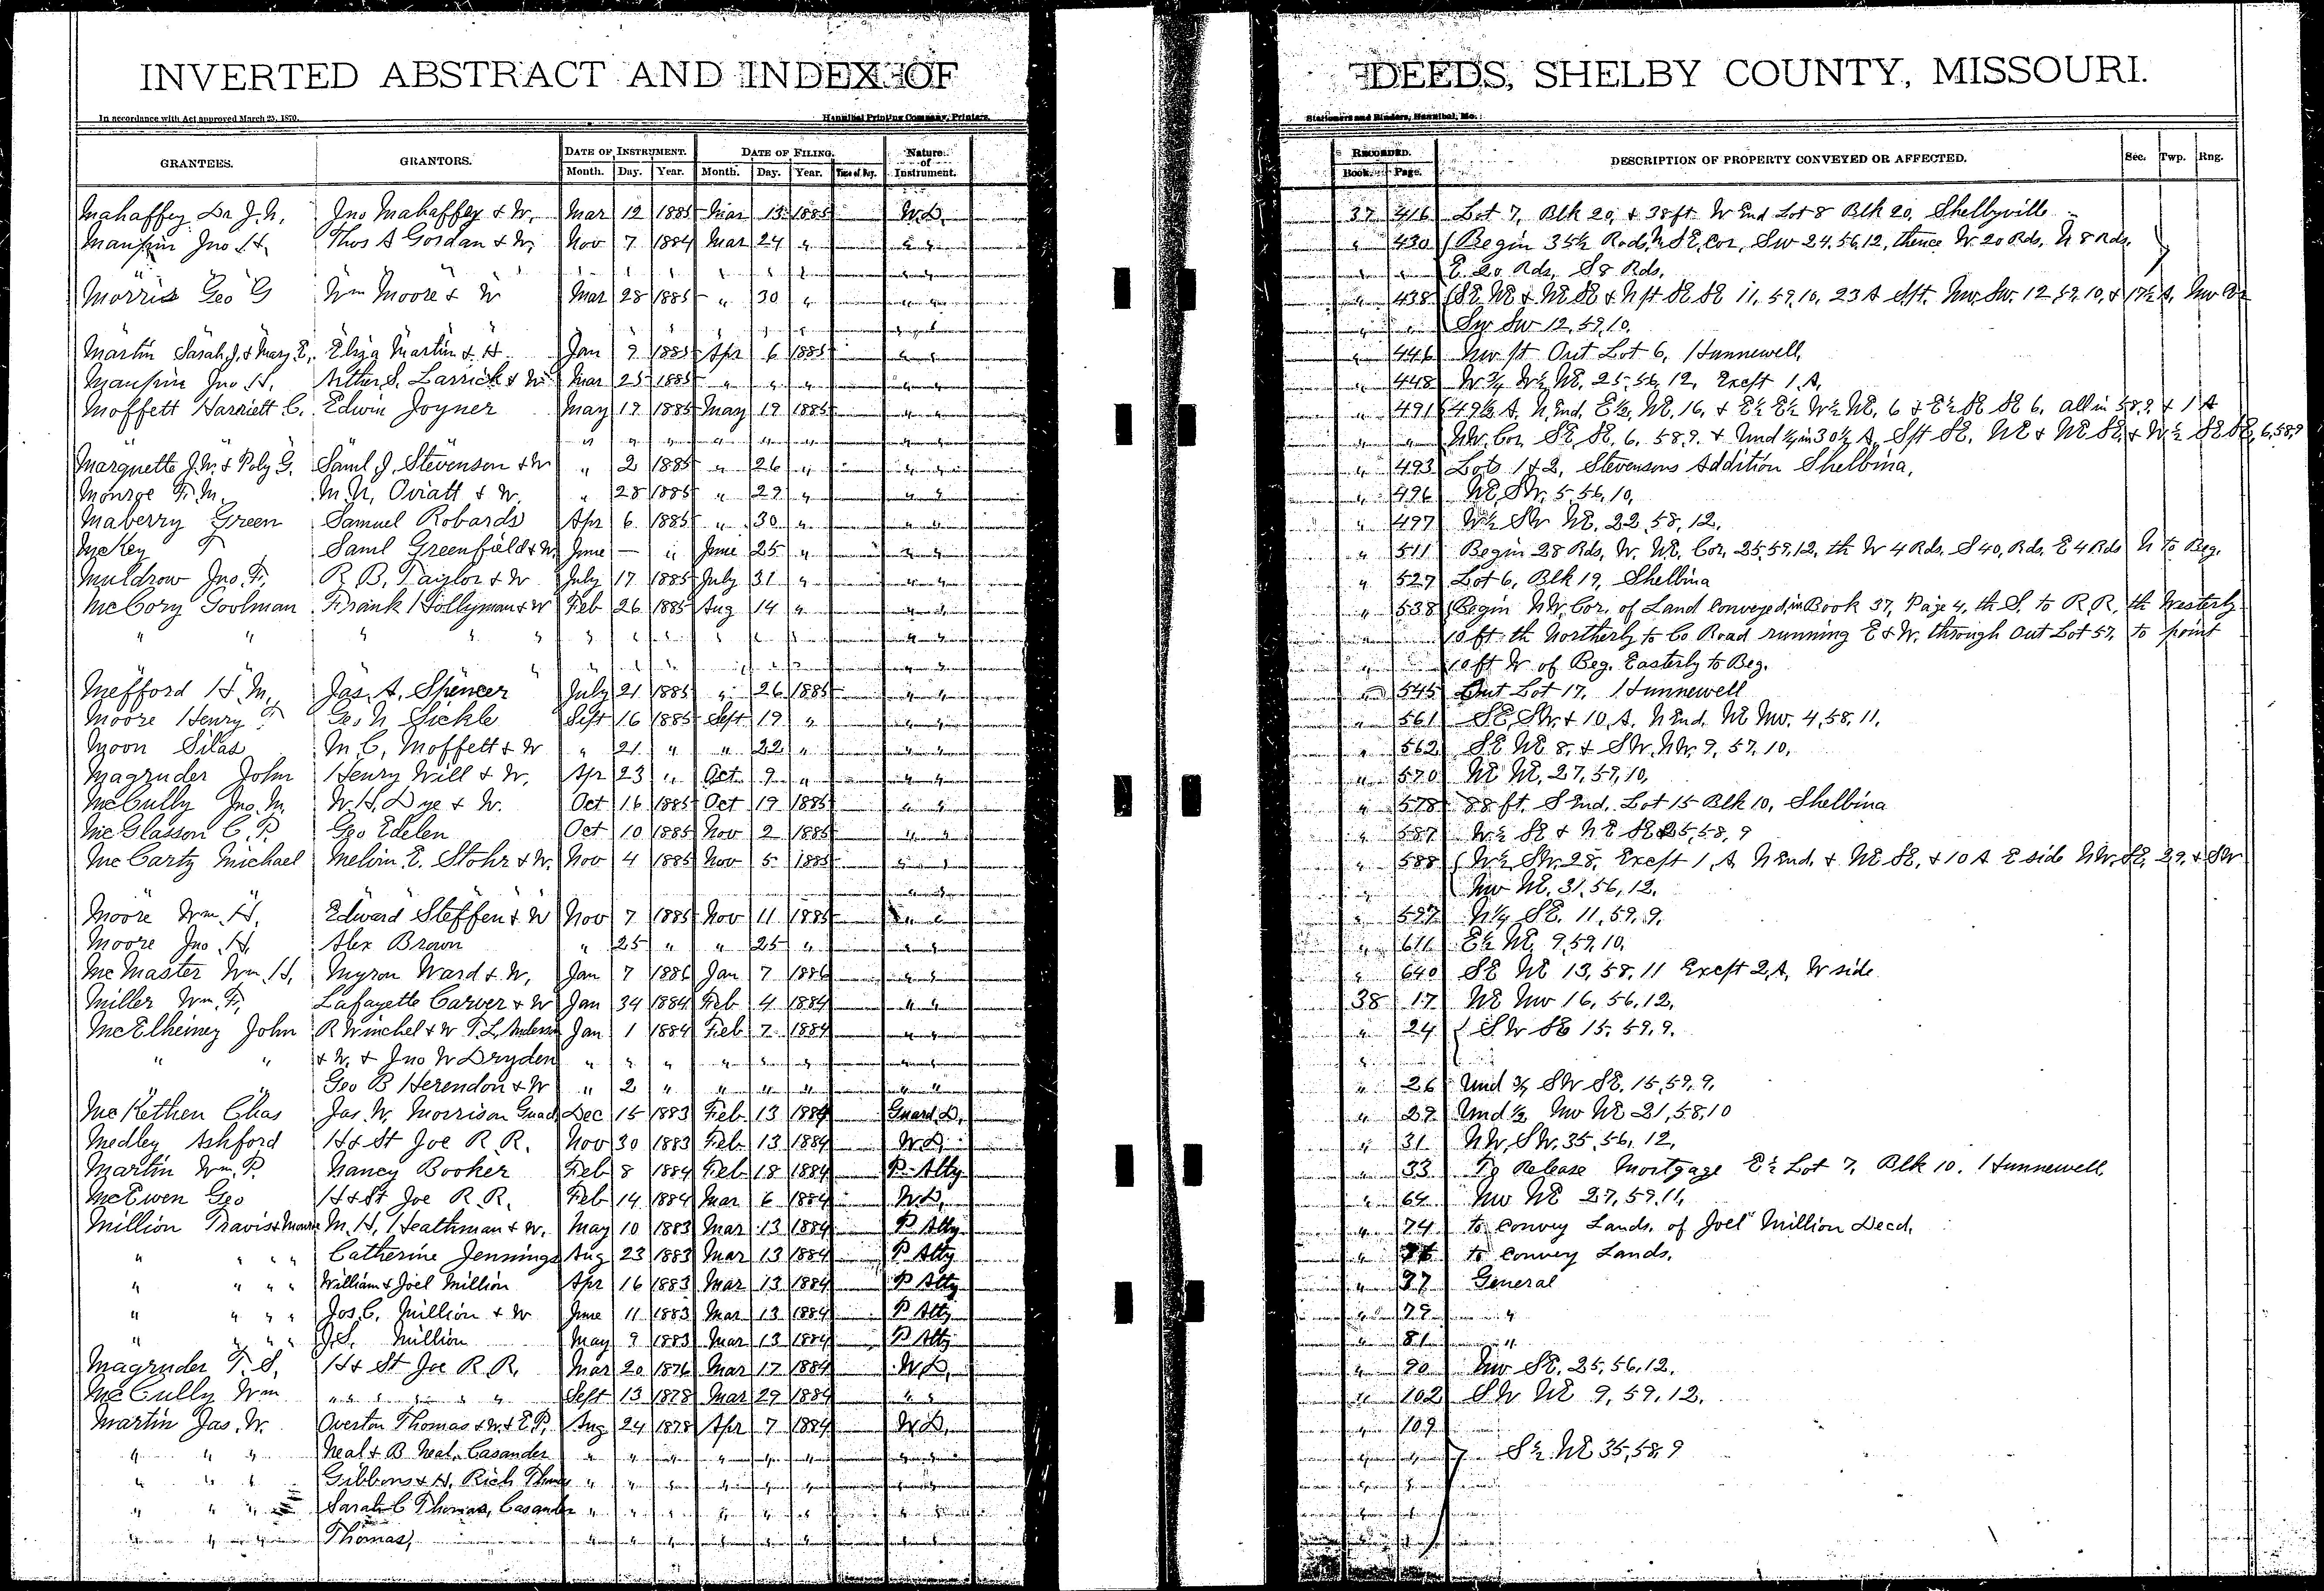 INVERTED ABSTRACT AND INDEX OF DEEDS, SHELBY COUNTY, MISSOURI.
In accordance with Act approved March 25, 1870. Hannibal Printing Company, Printers, Stationers and Binders, Hannibal, Mo.
GRANTEES. GRANTORS. DATE OF INSTRUMENT. DATE OF FILING. Nature of Instrument. RECORDED. DESCRIPTION OF PROPERTY CONVEYED OR AFFECTED. Sec. Twp. Rng.
Month. Day. Year. Month. Day. Year. Time of Day. Book. Page.
Mahaffey Dr J. N. Jno Mahaffey & W. Mar 12 1885 Mar 13 1885 W.D. 37 416 Lot 7, Blk 20, & 38 ft W End Lot 8 Blk 20, Shelbyville
Maupin Jno H. Thos A Gordan & W. Nov 7 1884 Mar 24 " " " " 430 Begin 35½ Rods, N SE, Cor, SW 24.56.12, thence W. 20 Rds, N 8 Rds.
" " " " " " " " " " " " E. 20 Rds, S 8 Rds.
Morris Geo G Wm Moore & W Mar 28 1885 " 30 " " " " 438 SE NE & NE SE & N pt SE SE 11, 59, 10, 23 A S pt. NW SW. 12, 59, 10, & 17½ A, NW Cor
" " " " " " " " " " SW SW 12, 59, 10,
Martin Sarah J. & Mary E. Eliza Martin & H. Jan 9 1885 Apr 6 1885 " " " 446 NW pt Out Lot 6, Hunnewell,
Maupin Jno H. Arther S. Larrick & W. Mar 25 1885 " " " " " " 448 W ¾ W½ NE, 25, 56, 12, Except 1 A,
Moffett Harriett C. Edwin Joyner May 19 1885 May 19 1885 " " " 491 49½ A, N End, E½, NE, 16, & E½ E½ W½ NE, 6 & E½ SE SE 6, all in 58, 9 & 1 A
" " " " " " " " " " " NW. Cor SE SE, 6, 58, 9. & Und ½ in 30½ A, S pt SE, NE & NE SE, & W½ SE SE, 6, 58, 9
Marquette J. W. & Poly G. Saml J. Stevenson & W " 2 1885 " 26 " " " " 493 Lots 1 & 2, Stevensons Addition Shelbina,
Monroe F. M. M. N. Oviatt & W. " 28 1885 " 29 " " " " 496 NE, SW, 5, 56, 10,
Maberry Green Samuel Robards Apr 6 1885 " 30 " " " " 497 W½ SW NE, 22, 58, 12,
McKey F Saml Greenfield & W June — " June 25 " " " " 511 Begin 28 Rds, W. NE, Cor, 25, 59, 12, th W 4 Rds. S 40, Rds. E 4 Rds N to Beg.
Muldrow Jno. F. R. B. Taylor & W July 17 1885 July 31 " " " " 527 Lot 6, Blk 19, Shelbina
McCory Goolman Frank Hollyman & W Feb 26 1885 Aug 14 " " " " 538 Begin NW, Cor. of Land Conveyed in Book 37, Page 4, th S. to R.R. th Westerly
" " " " " " " " " " " " " " 10 ft th Northerly to Co Road running E & W. through Out Lot 57, to point
" " " " " " " " " " 10 ft W of Beg. Easterly to Beg.
Mefford H. M. Jas. A. Spencer July 21 1885 " 26 1885 " " " 545 Out Lot 17, Hunnewell
Moore Henry F Geo N Sickle Sept 16 1885 Sept 19 " " " " 561 SE, SW, & 10, A. N End, NE NW, 4, 58, 11,
Moon Silas M. C. Moffett & W " 21 " " 22 " " " " 562 SE NE 8, & SW, NW, 9, 57, 10,
Magruder John Henry Will & W. Apr 23 " Oct 9 " " " " 570 NE NE, 27, 59, 10,
McCully Jno. M. W. H. Dye & W. Oct 16 1885 Oct 19 1885 " " " 578 88 ft. S End. Lot 15 Blk 10, Shelbina
McGlasson C. P. Geo Edelen Oct 10 1885 Nov 2 1885 " " " 587 W½ SE & NE SE 25, 58, 9
McCarty Michael Melvin E. Stohr & W. Nov 4 1885 Nov 5 1885 " " " 588 W½ SW, 28, Except 1, A N End, & NE SE, & 10 A E side NW, SE, 29, & SW
" " " NW NE, 31, 56, 12,
Moore Wm. H. Edward Steffen & W Nov 7 1885 Nov 11 1885 " " " 597 N¼ SE. 11, 59, 9,
Moore Jno. H. Alex Brown " 25 " " 25 " " " " 611 E½ NE, 9, 59, 10,
McMaster Wm. H. Myron Ward & W. Jan 7 1886 Jan 7 1886 " " " 640 SE NE 13, 58, 11 Except 2, A, W side
Miller Wm. F. Lafayette Carver & W Jan 34 1884 Feb 4 1884 " " 38 17 NE NW 16, 56, 12,
McElheiney John R Winchel & W T. L. Anderson Jan 1 1884 Feb 7 1884 " " " 24 SW SE 15, 59, 9,
" " & W. & Jno W Dryden " " " " " " " " "
Geo B Herendon & W " 2 " " " " " " " 26 Und 3/7 SW SE, 15, 59, 9,
McKethen Chas Jas. W. Morrison Guad Dec 15 1883 Feb 13 1884 Guard. D. " 29 Und ½ NW NE 21, 58, 10
Medley Ashford H & St Joe R. R. Nov 30 1883 Feb 13 1884 W.D. " 31 NW, SW, 35, 56, 12,
Martin Wm. P. Nancy Booker Feb 8 1884 Feb 18 1884 P. Atty " 33 To Release Mortgage E½ Lot 7, Blk 10. Hunnewell,
McEwen Geo H & St Joe R. R. Feb 14 1884 Mar 6 1884 W.D. " 64 NW NE 27, 59, 11,
Million Travis & Monroe M. H. Heathman & W. May 10 1883 Mar 13 1884 P Atty " 74 to Convey Lands, of Joel Million Decd,
" " " " Catherine Jennings Aug 23 1883 Mar 13 1884 P Atty " 76 to Convey Lands.
" " " " William & Joel Million Apr 16 1883 Mar 13 1884 P Atty " 77 General
" " " " Jos. C. Million & W June 11 1883 Mar 13 1884 P Atty " 79 "
" " " " J. S. Million May 9 1883 Mar 13 1884 P Atty " 81 "
Magruder T. S. H & St Joe R R. Mar 20 1876 Mar 17 1884 W.D. " 90 NW SE, 25, 56, 12,
McCully Wm " " " " " " Sept 13 1878 Mar 29 1884 " " " 102 SW NE 9, 59, 12,
Martin Jas. W. Overton Thomas & W. & E. P. Aug 24 1878 Apr 7 1884 W.D. " 109
" " " Neal & B Neal, Casander " " " " " " " " " " S½ NE 35, 58, 9
" " " Gibbons & H. Rich Thomas " " " " " " " " " "
" " " Sarah C Thomas, Casander " " " " " " " " " "
" " " Thomas, " " " " " " " " " "